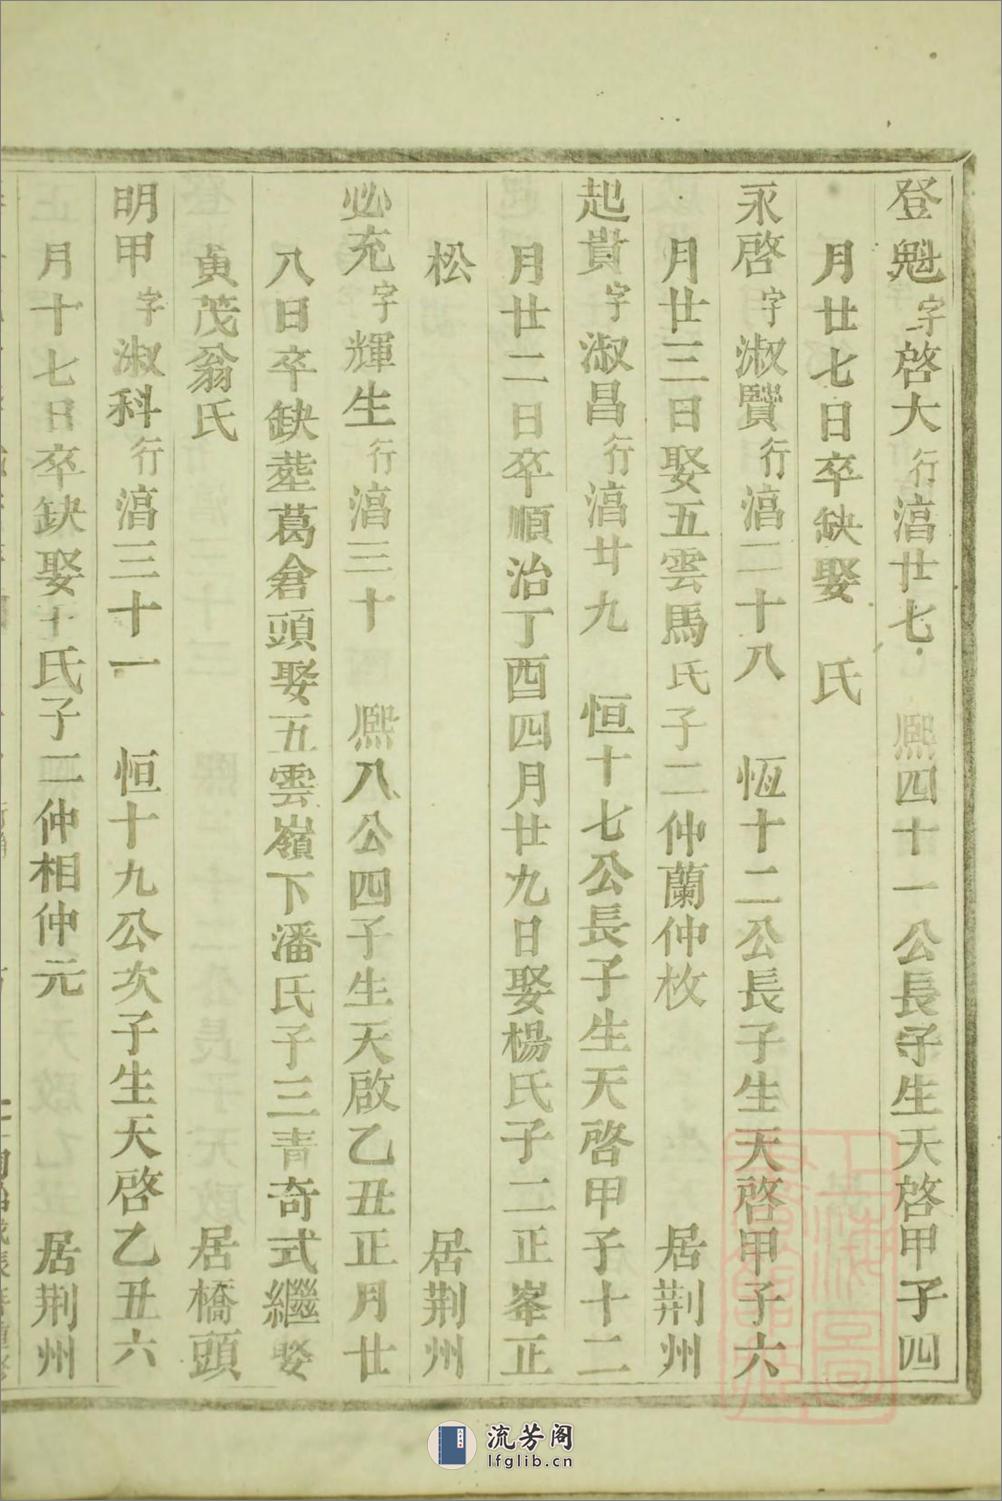 登魁字啓大行湻廿七 熙四十一公長子生天啓甲子四
月廿七日卒缺娶 氏
永啓字淑贒行湻二十八 恆十二公長子生天啓甲子六
月廿三日娶五雲馬氏子二仲蘭仲枚 居荆州
起貴字淑昌行湻廿九 恒十七公長子生天啓甲子十二
月廿二日卒順治丁酉四月廿九日娶楊氏子二正峯正
松 居荆州
必充字輝生行湻三十 熙八公四子生天啟乙丑正月廿
八日卒缺塟葛倉頭娶五雲嶺下潘氏子三青奇式繼娶
茂翁氏 居橋頭
明甲字淑科行湻三十一 恒十九公次子生天啓乙丑六
月十七日卒缺娶氏子二仲相仲元 居荆州
上海圖
流芳阁
lfglib.cn